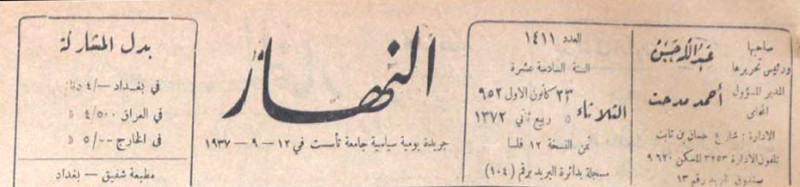 صاحبها
ورئيس تحريرها
عبدالله حسن
المدير المسؤول
المحامي
أحمد مدحت
الادارة : شارع حسان بن ثابت
تلفون الادارة ٣٢٥٣ المسكن ٩٦٢٠
صندوق البريد رقم ١٣
العدد ١٤١١
السنة السادسة عشرة
الثلاثاء
٢٣ كانون الاول ٩٥٢
٥ ربيع ثاني ١٣٧٢
ثمن النسخة ١٢ فلسا
مسجلة بدائرة البريد برقم (١٠٤)
النهار
جريدة يومية سياسية جامعة تأسست في ١٢ – ٩ – ١٩٣٧
بدل المشاركة
في بغداد —/٤ دينار
في العراق ٤/٥٠٠ د
في الخارج ٥/٠٠ د
مطبعة شفيق – بغداد